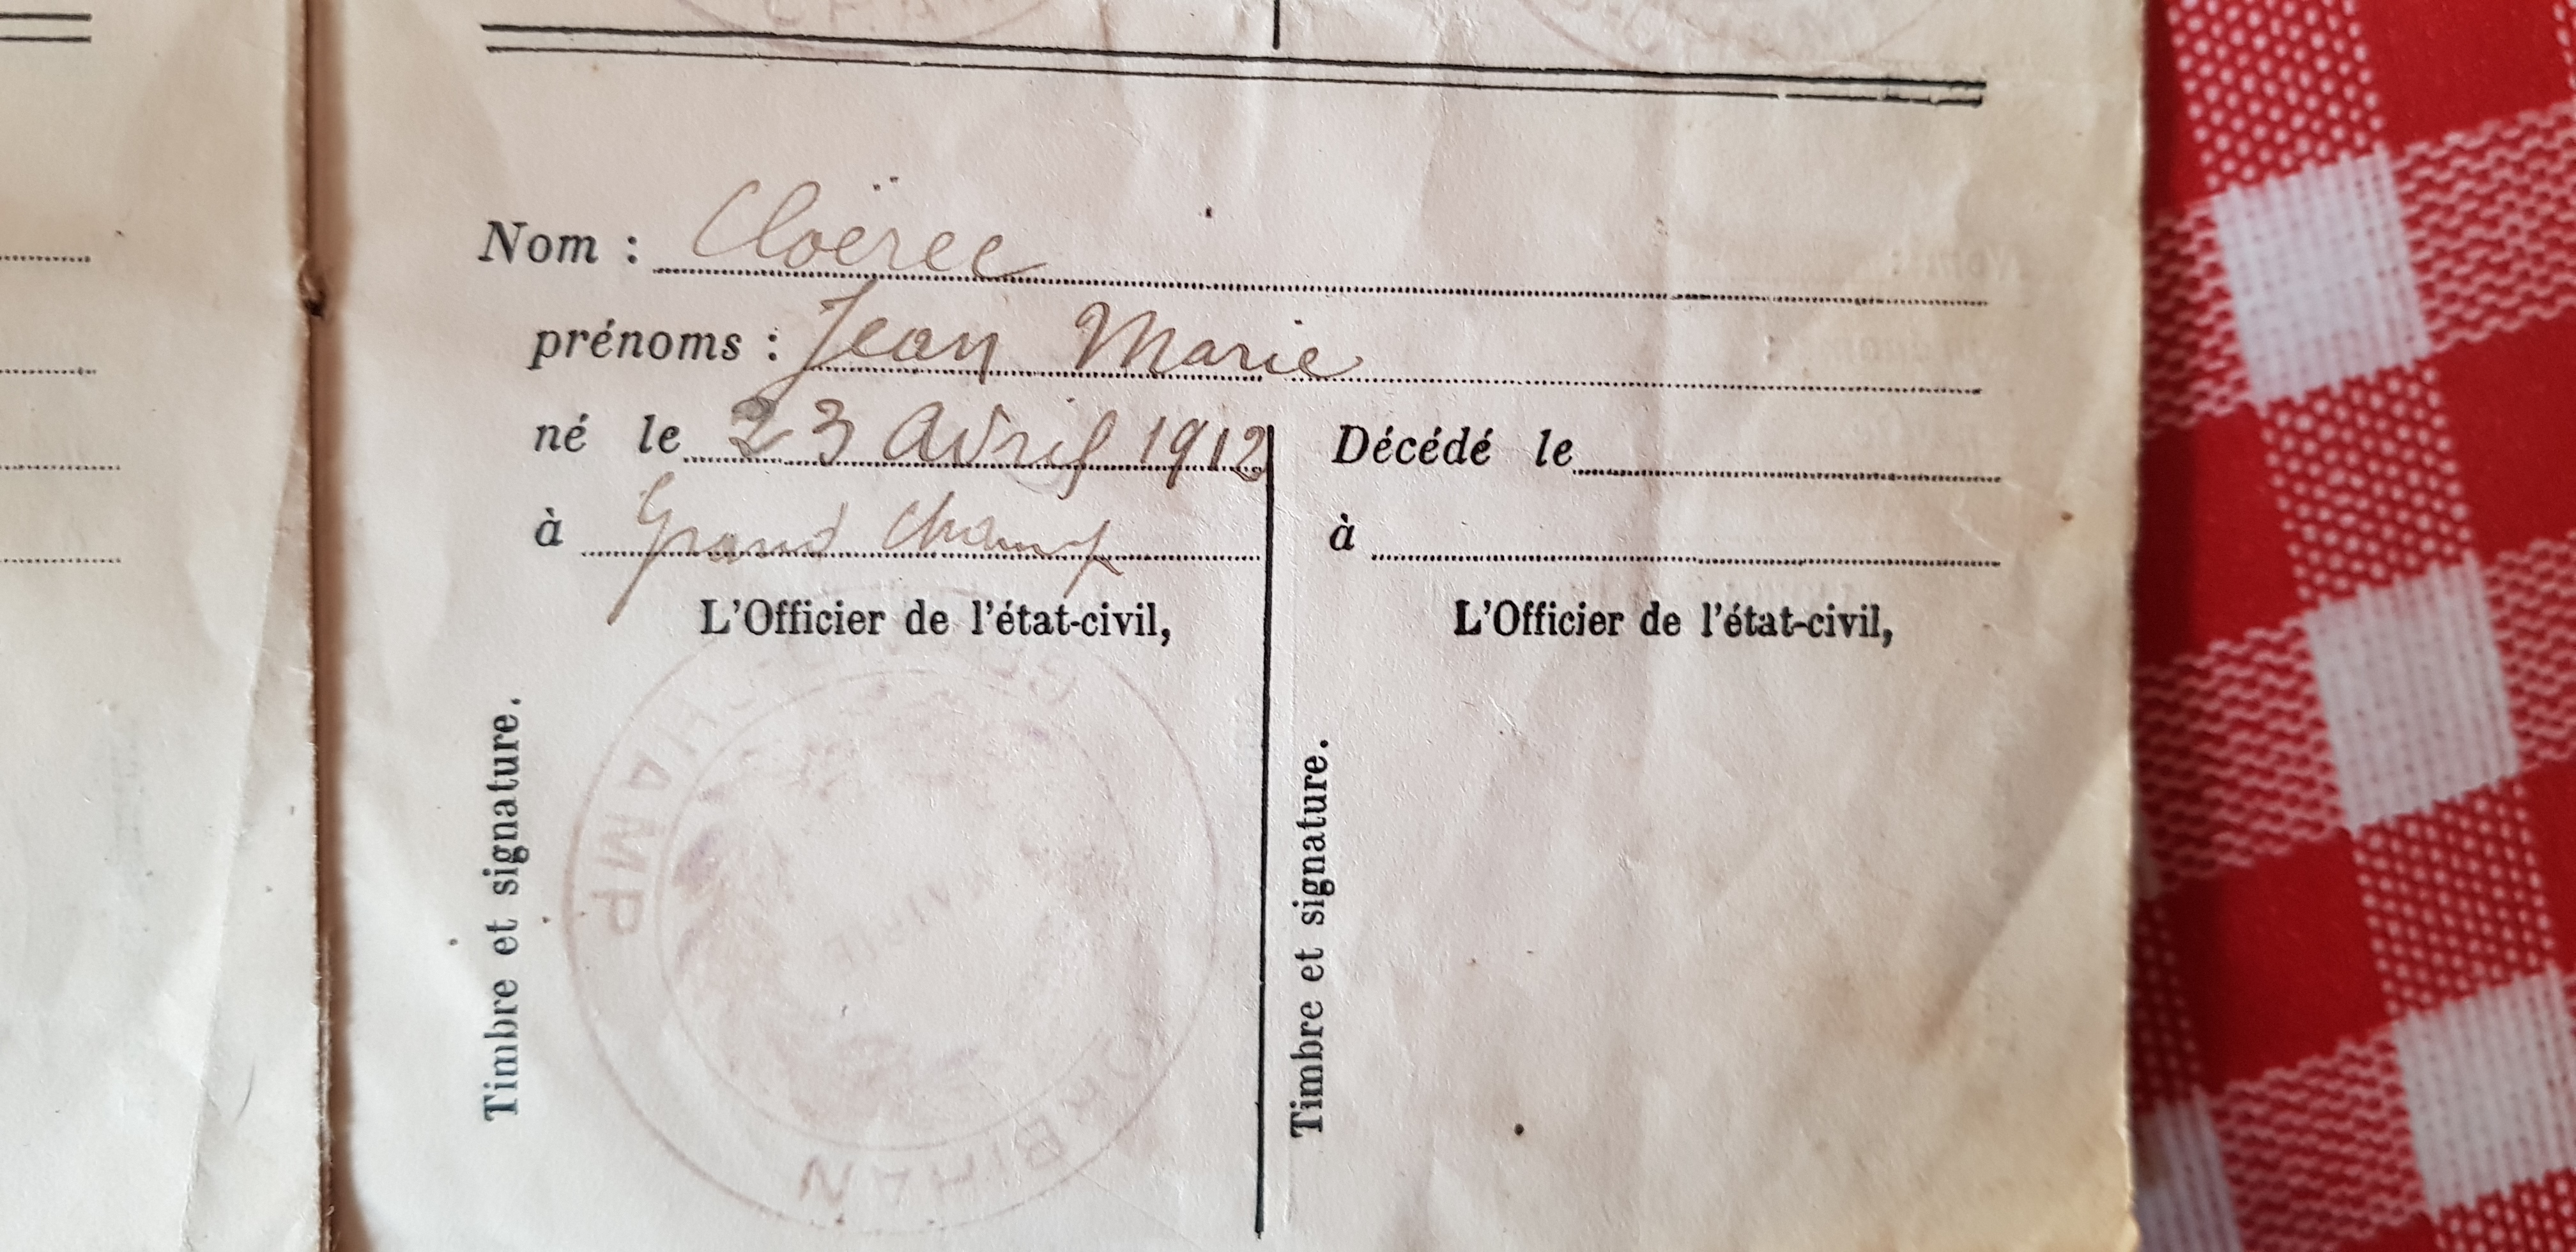 Nom : Cloërec
prénoms : Jean Marie
né le 23 Avril 1912
à Grand Champ
L'Officier de l'état-civil,
Timbre et signature.
CHAMP
MORBIHAN
MAIRIE
Décédé le
à
L'Officier de l'état-civil,
Timbre et signature.